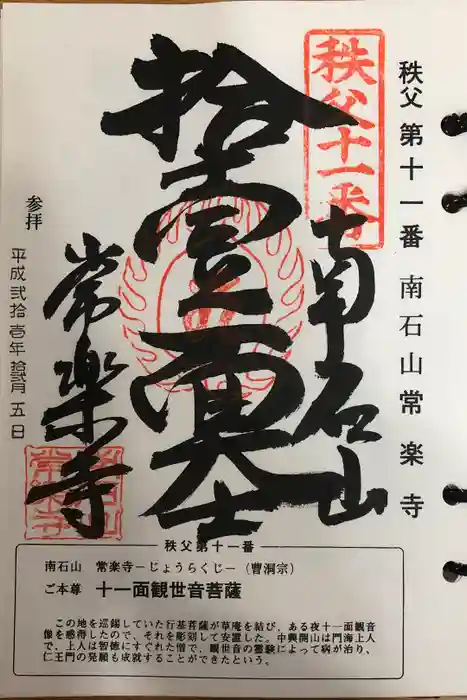 秩父 第十一番 南石山 常楽寺
秩父十一番
南石山
拾壹面真士
常楽寺
参拝
平成弐拾壱年 拾弐月 五日
秩父第十一番
南石山 常楽寺−じょうらくじ−(曹洞宗)
ご本尊 十一面観世音菩薩
この地を巡錫していた行基菩薩が草庵を結び、ある夜十一面観音
像を感得したので、それを彫刻して安置した。中興開山は門海上人
で、上人は智徳にすぐれた僧で、観世音の霊験によって病が治り、
仁王門の発願も成就することができたという。